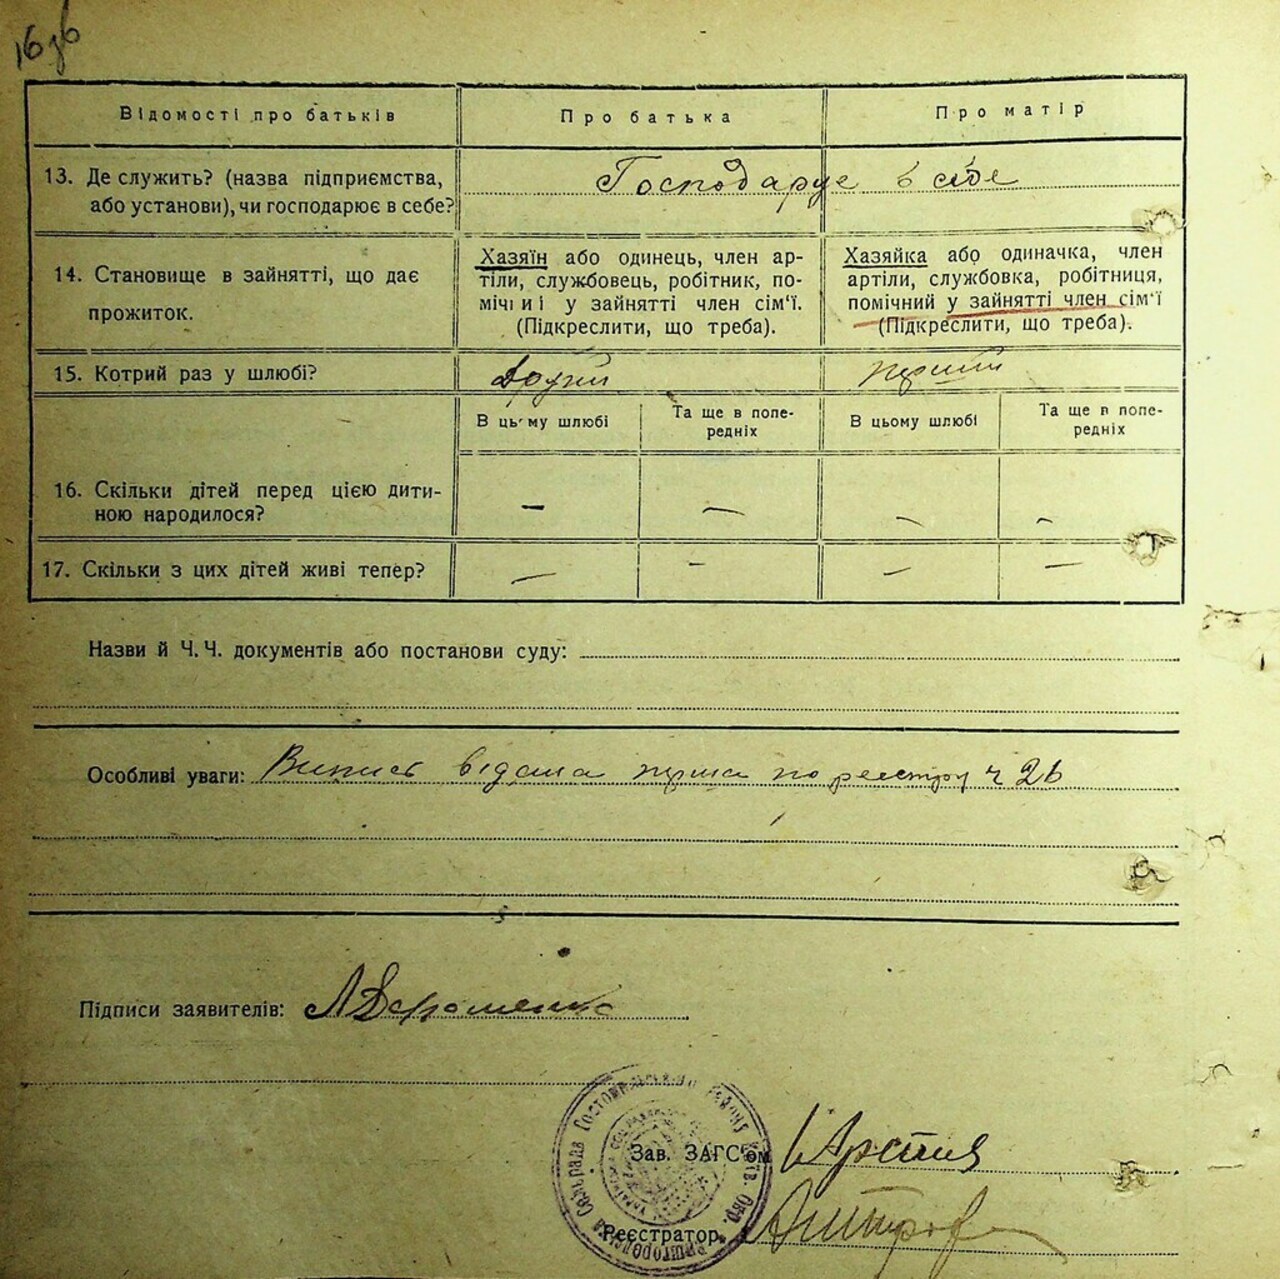 16зб
Відомості про батьків
Про батька
Про матір
13. Де служить? (назва підприємства,
або установи), чи господарює в себе?
Господарує в себе
14. Становище в зайнятті, що дає
прожиток.
Хазяїн або одинець, член ар-
тіли, службовець, робітник, по-
мічний у зайнятті член сім'ї.
(Підкреслити, що треба).
Хазяйка або одиначка, член
артіли, службовка, робітниця,
помічний у зайнятті член сім'ї
(Підкреслити, що треба).
15. Котрий раз у шлюбі?
Другий
перший
В цьому шлюбі
Та ще в попе-
редніх
В цьому шлюбі
Та ще в попе-
редніх
16. Скільки дітей перед цією дити-
ною народилося?
— — — —
17. Скільки з цих дітей живі тепер?
— — — —
Назви й Ч. Ч. документів або постанови суду:
Особливі уваги: Випись відана перша по реєстру ч 26
Підписи заявителів:
Зав. ЗАГС'ом
Реєстратор